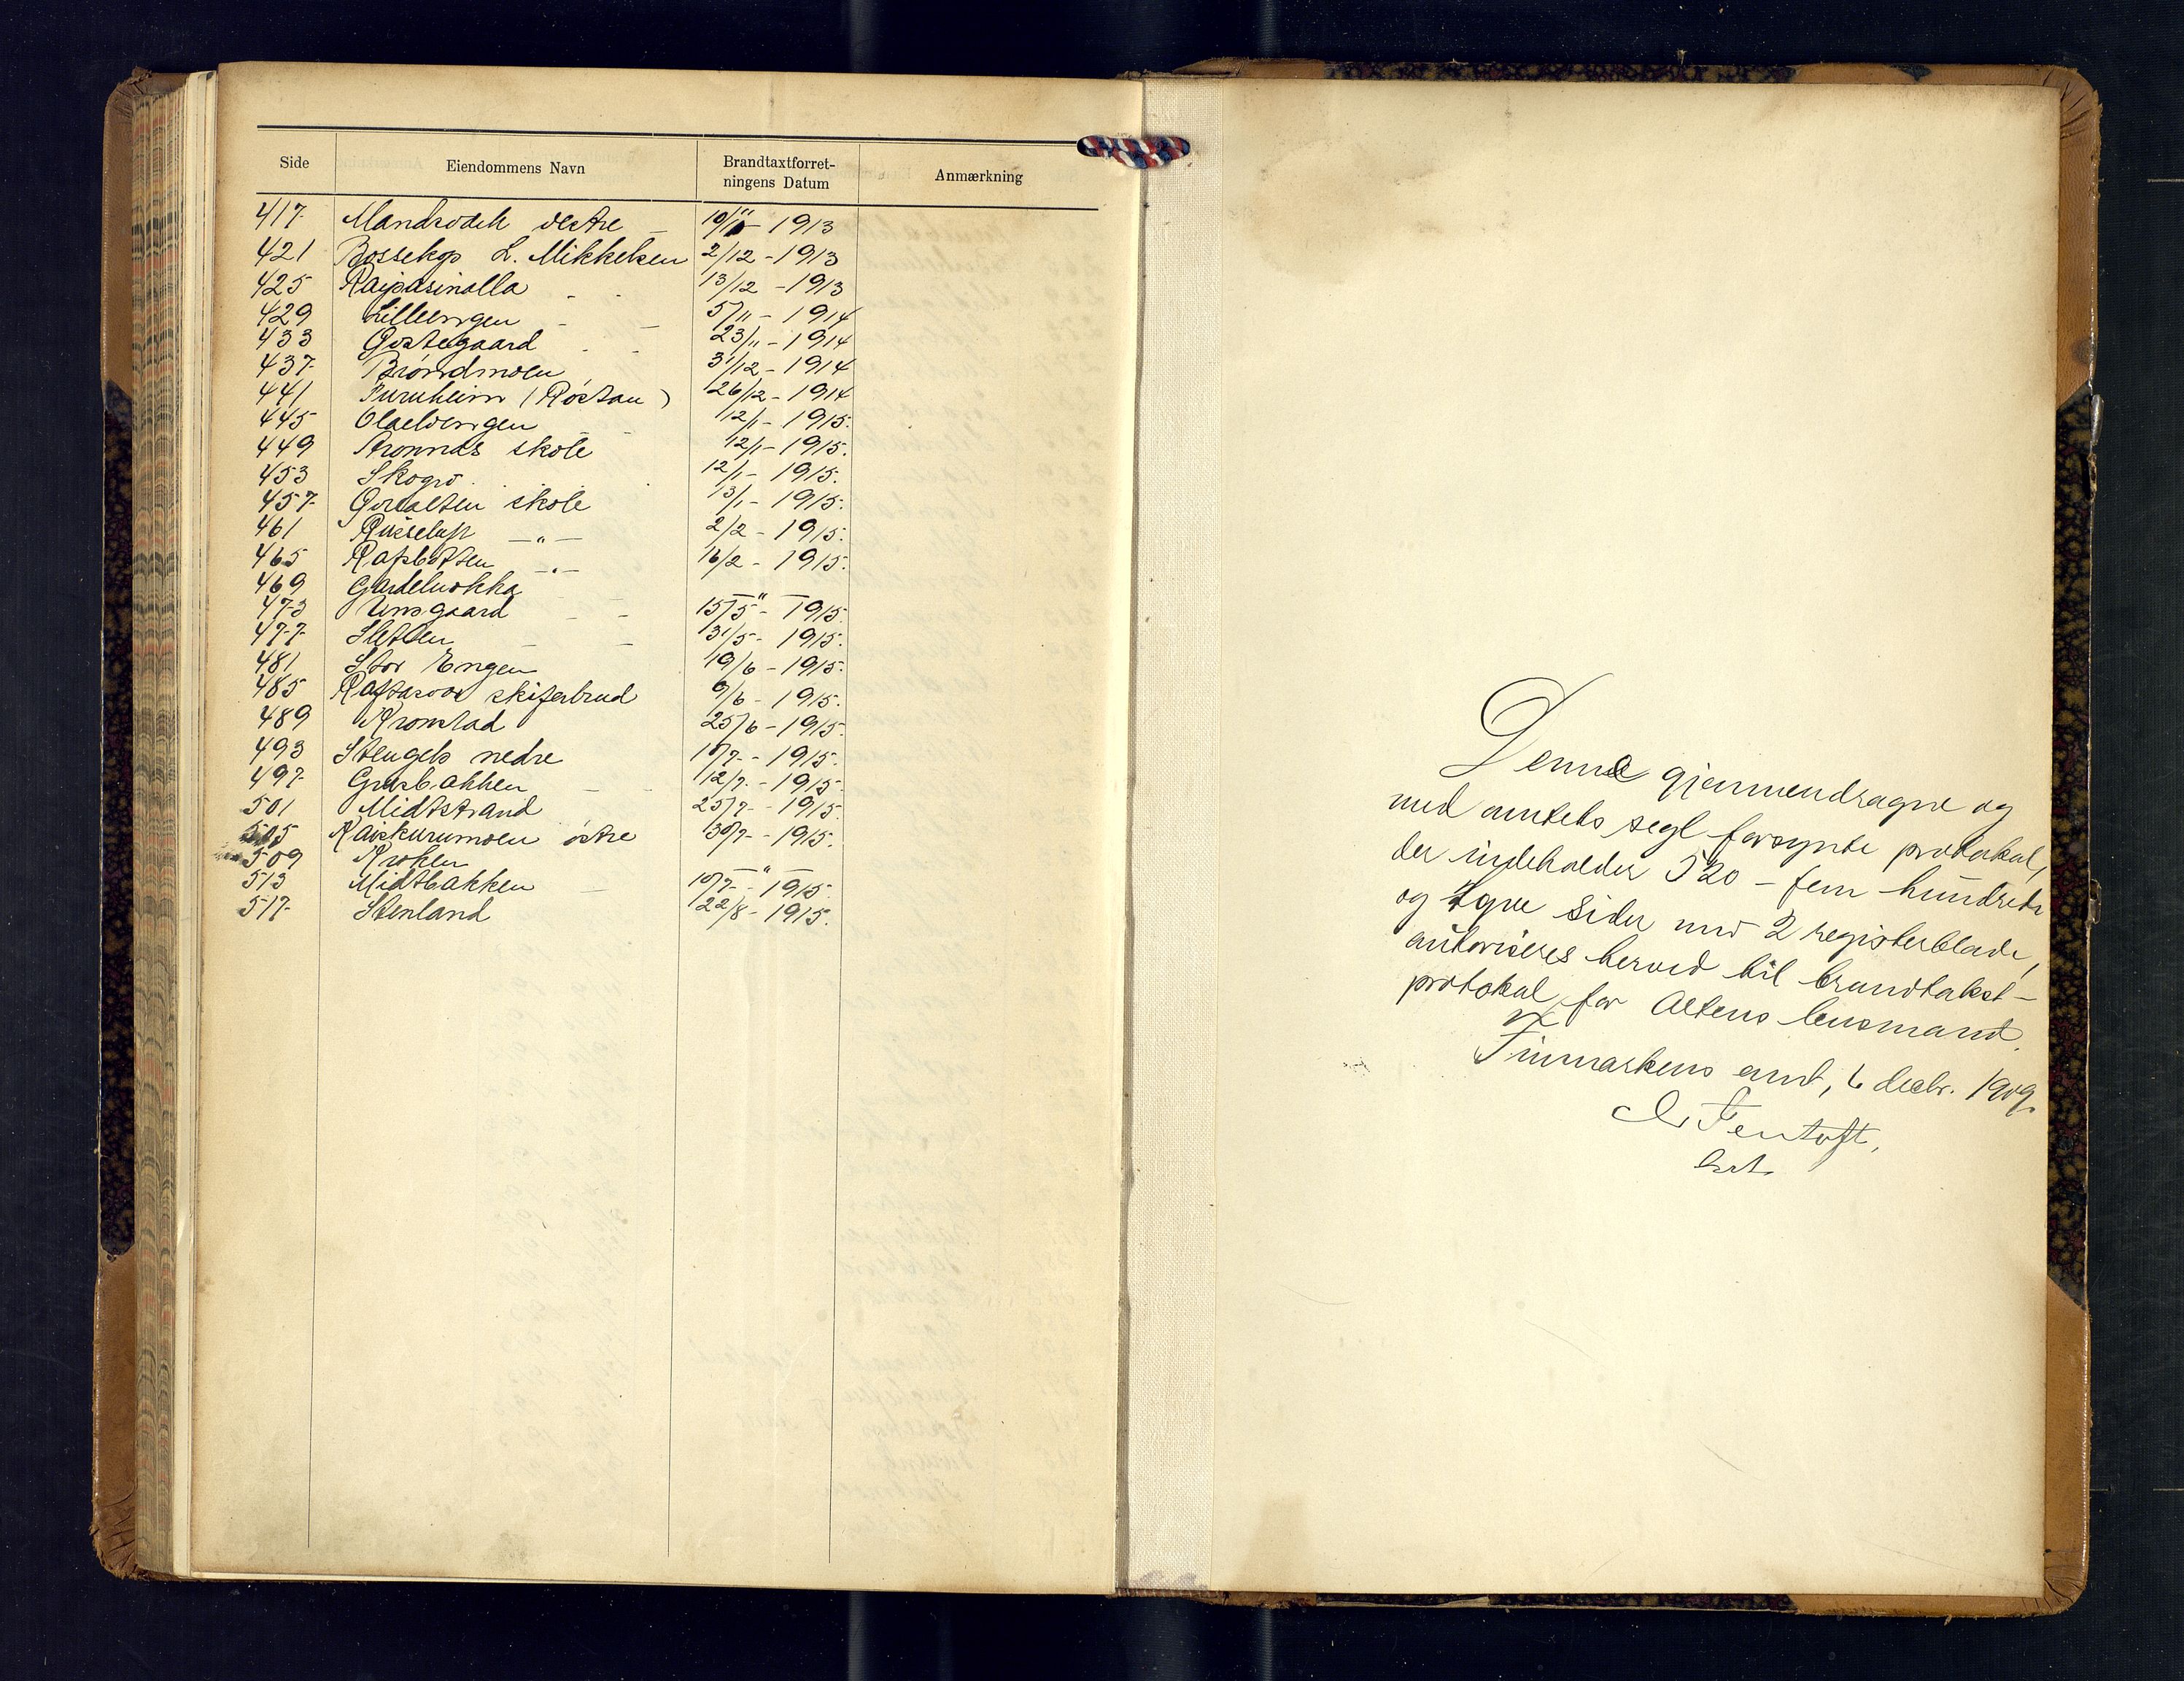 Side Eiendommens Navn Brandtaxtforret-ningens Datum Anmærkning
417 vestre 1913
421 Bossekop L. Mikkelsen 2/12 - 1913
425 Raipasinalla 13/12 - 1913
429 Lillevngen 5/11 - 1914
433 23/11 - 1914
437 Bróndmoen 31/12 - 1914
441 Furuheim (Róstau) 26/12 - 1914
445 12/1 - 1915.
449 Kronnæs skole 12/1 - 1915.
453 Skogro 12/1 - 1915.
457 skole 13/1 - 1915.
461 Russeluft — " — 2/2 - 1915.
465 Rafsbotten — " — 16/2 - 1915.
469 — " —
473 15/5 - 1915.
477 Sletten 31/5 - 1915.
481 Stor Engen 19/6 - 1915.
485 skiferbrud 9/6 - 1915.
489 Kronstad 25/6 - 1915.
493 Stengels nedre 10/7 - 1915.
497 Græsbakken 12/7 - 1915.
501 Midtstrand 25/7 - 1915.
505 Raiskurumoen óstre 30/7 - 1915.
509 Kroken — " —
513 Midtbakken 10/7 - 1915.
517 Stenland 22/8 - 1915.
Denne gjennemdragne og
med amtets segl forsynte protokol,
der indeholder 520 - fem hundrede
og tyve sider med 2 registerblade,
autoriseres herved til brandtakst-
protokol for Altens lensmand.
Finmarkens amt, 6 decbr. 1909.
Fentoft,
cst.